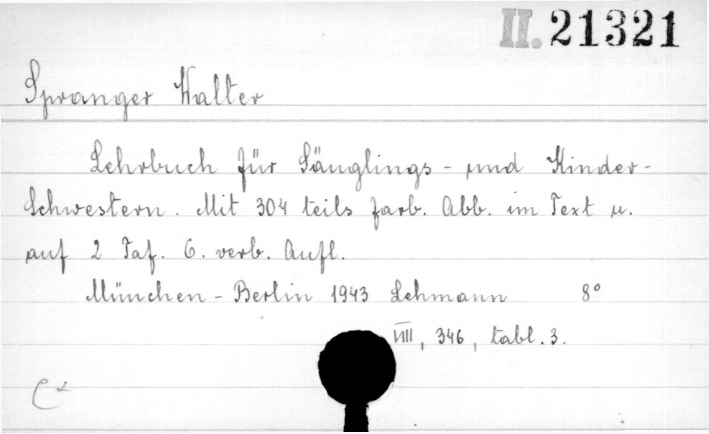 II. 21321
Spranger Walter
Lehrbuch für Säuglings- und Kinder-
schwestern. Mit 304 teils farb. Abb. im Text u.
auf 2 Taf. 6. verb. Aufl.
München-Berlin 1943 Lehmann 8°
VIII, 346, tabl. 3.